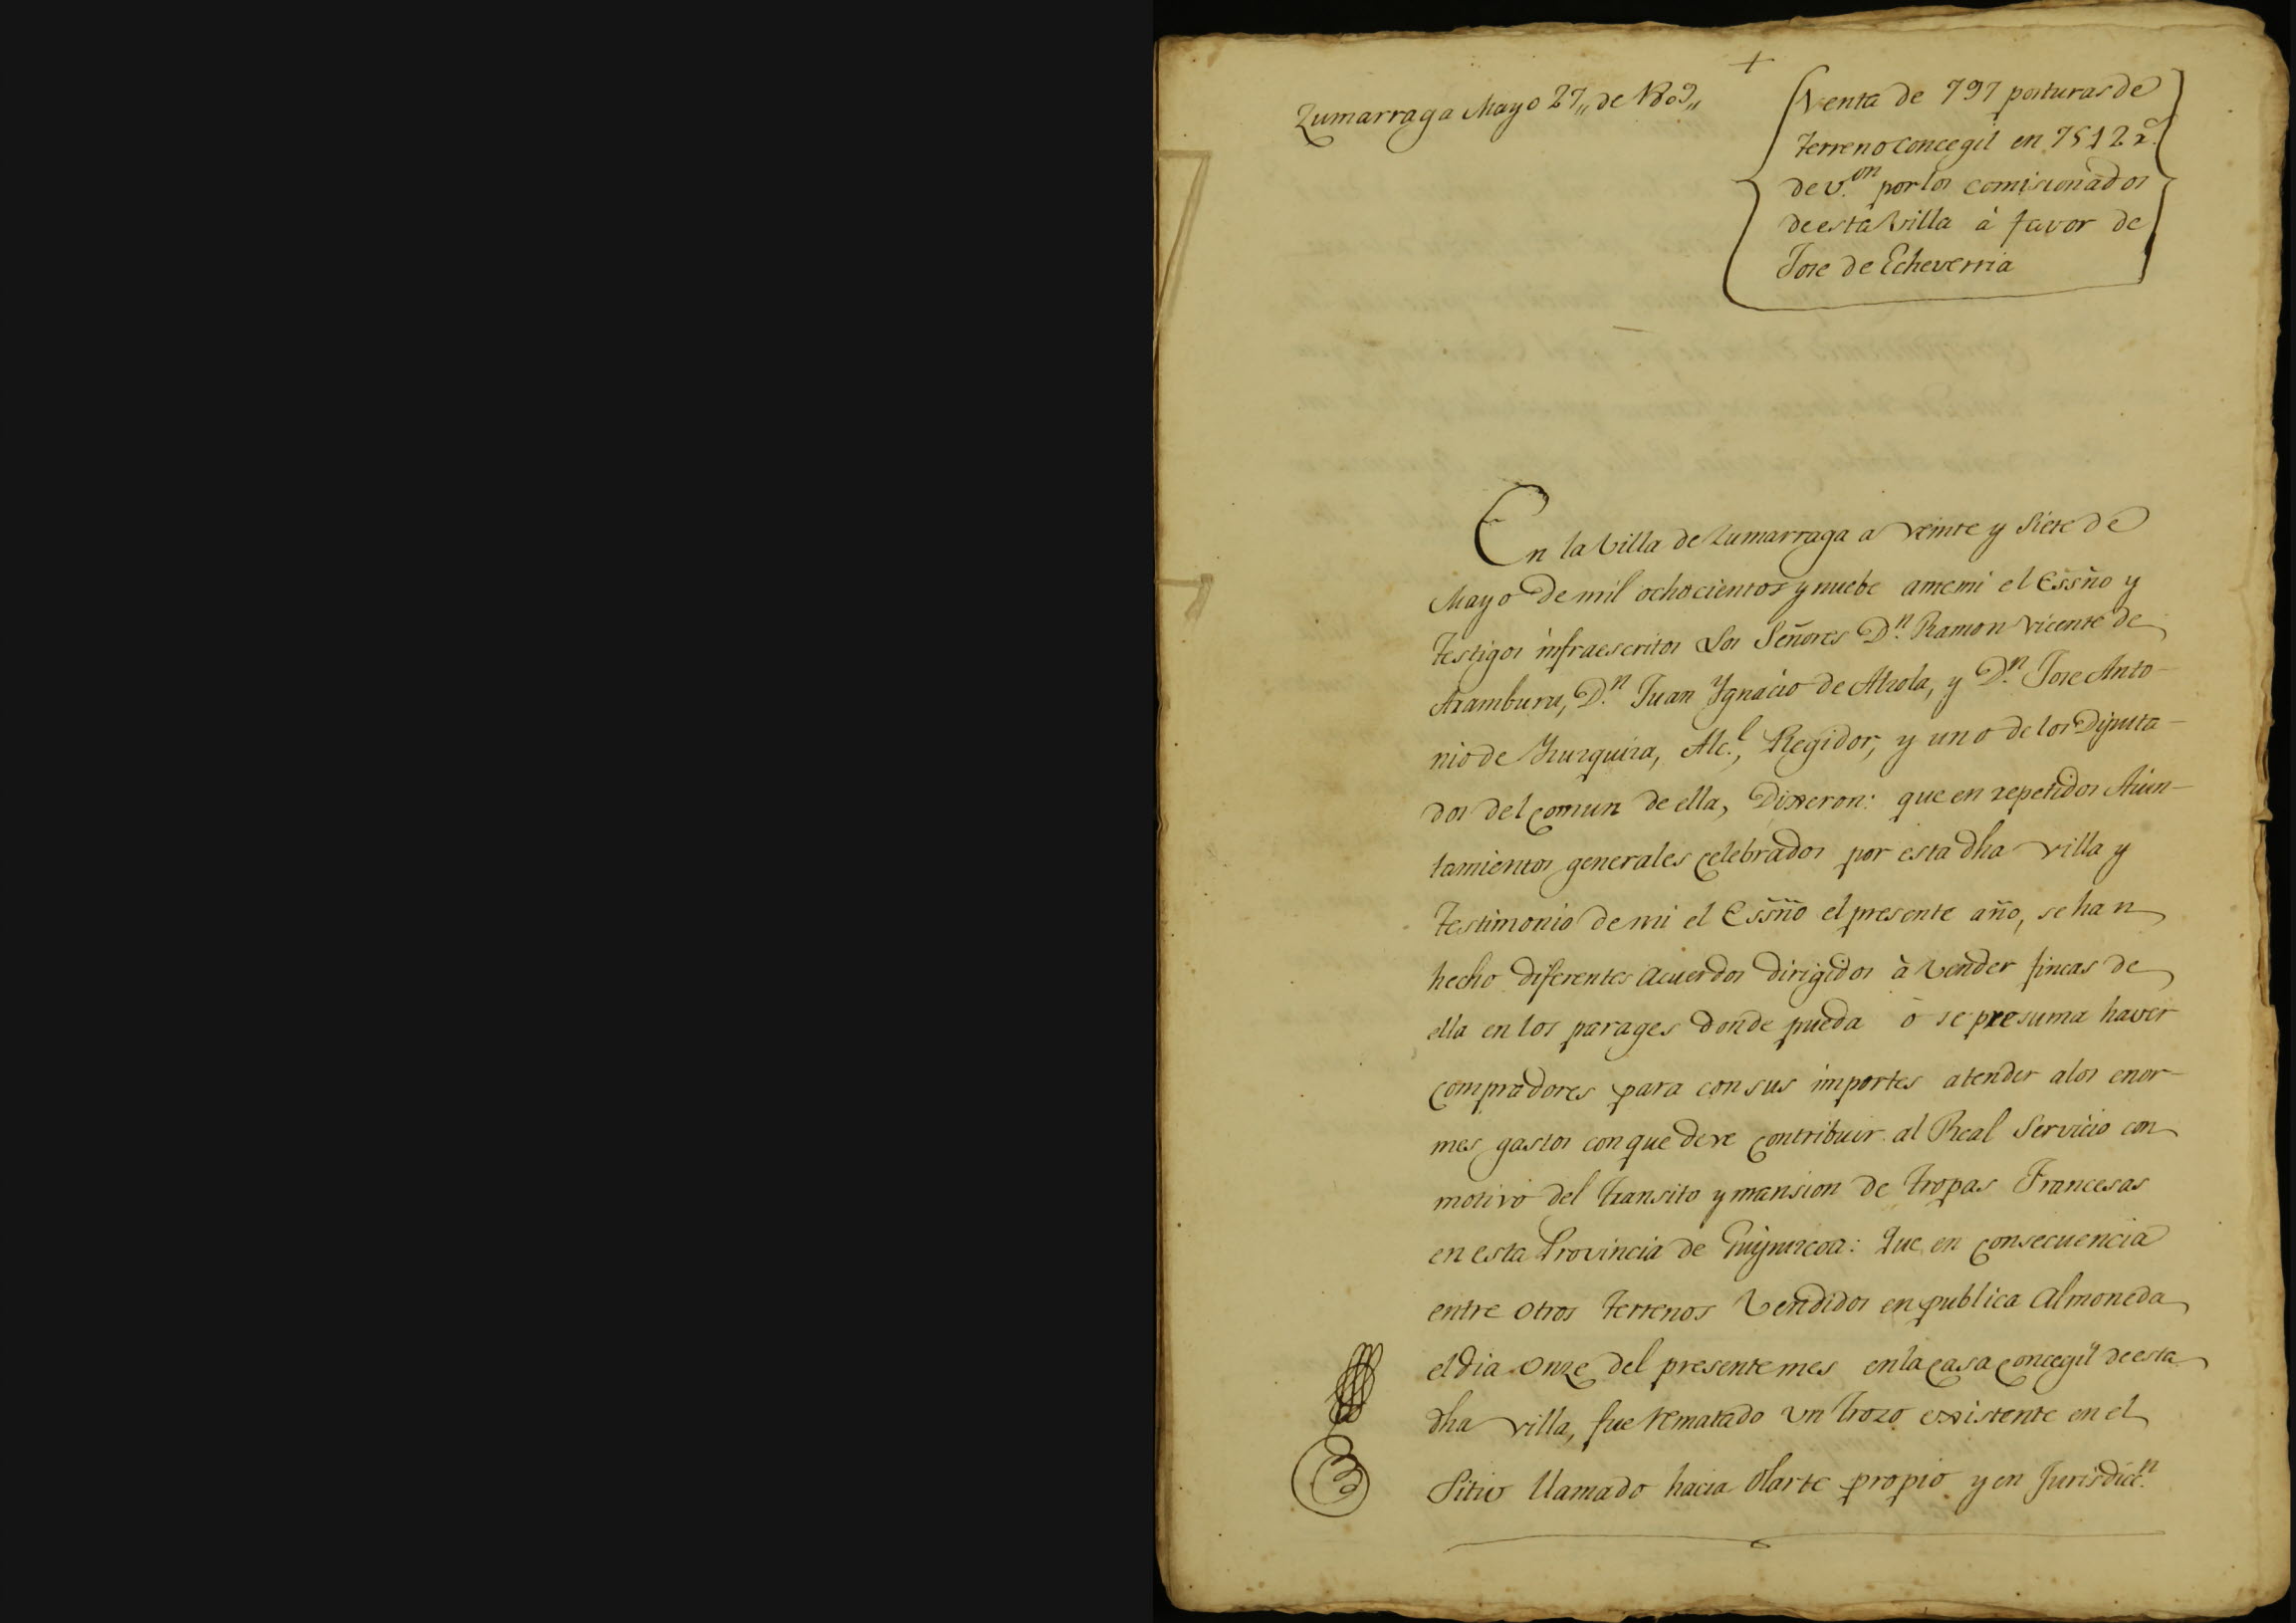 +
Zumarraga Mayo 27,, de 1809,,
Venta de 797 posturas de
terreno concegil en 7512 r.^s
de v.^on por los comisionados
de esta Villa à favor de
Jose de Echeverria
En la Villa de Zumarraga a veinte y siete de
Mayo de mil ochocientos y nuebe ante mi el Essño y
testigos infraescritos Los Señores D.^n Ramon Vicente de
Aramburu, D.^n Juan Ygnacio de Alzola, y D.^n Jose Anto-
nio de Yzuzquiza, Alc.^l, Regidor, y uno de los Diputa-
dos del comun de ella, Dixeron: que en repetidos Aiun-
tamientos generales celebrados por esta dha villa y
testimonio de mi el Essño el presente año, se han
hecho diferentes acuerdos dirigidos à Vender fincas de
ella en los parages donde pueda ò se presuma haver
compradores para con sus importes atender alos enor-
mes gastos con que deve contribuir al Real Servicio con
motivo del transito y mansion de tropas Francesas
en esta Provincia de Guipuzcoa: Que en consecuencia
entre otros terrenos Vendidos en publica Almoneda
el dia Onze del presente mes en la casa concegil de esta
dha villa, fue rematado un trozo existente en el
Sitio llamado hacia Olarte propio y en Jurisdicc.^n